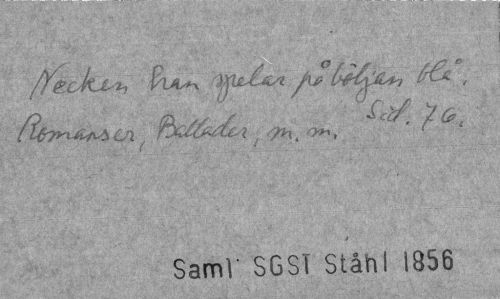 Necken han spelar på böljan blå.
Romanser, Ballader, m.m. Sid. 76.
Saml SGST Ståhl 1856